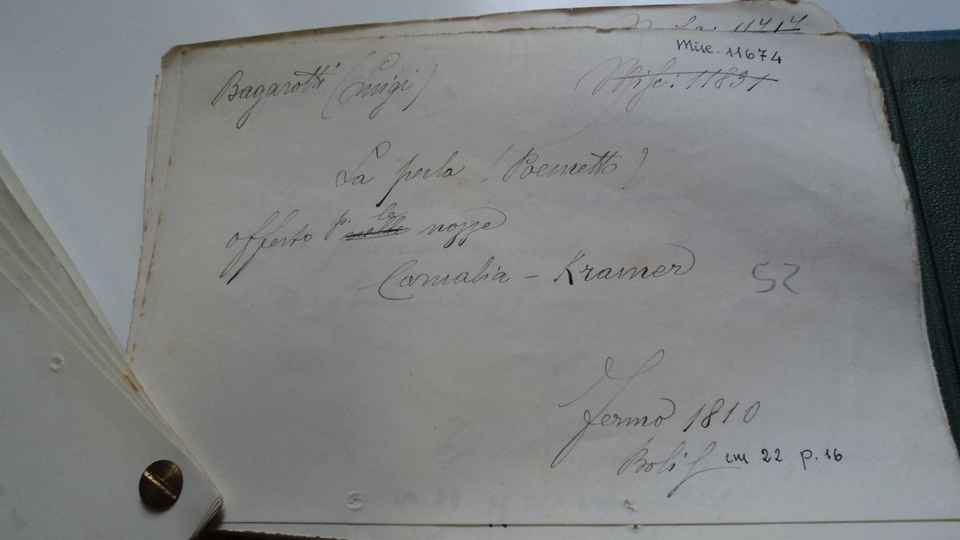 11717
Misc. 11674
Bagarotti (Luigi) Misc. 11891
La perla (Poemetto)
offerto p. le nozze
Camalia - Kramer
52
Fermo 1810
cm 22 p. 16